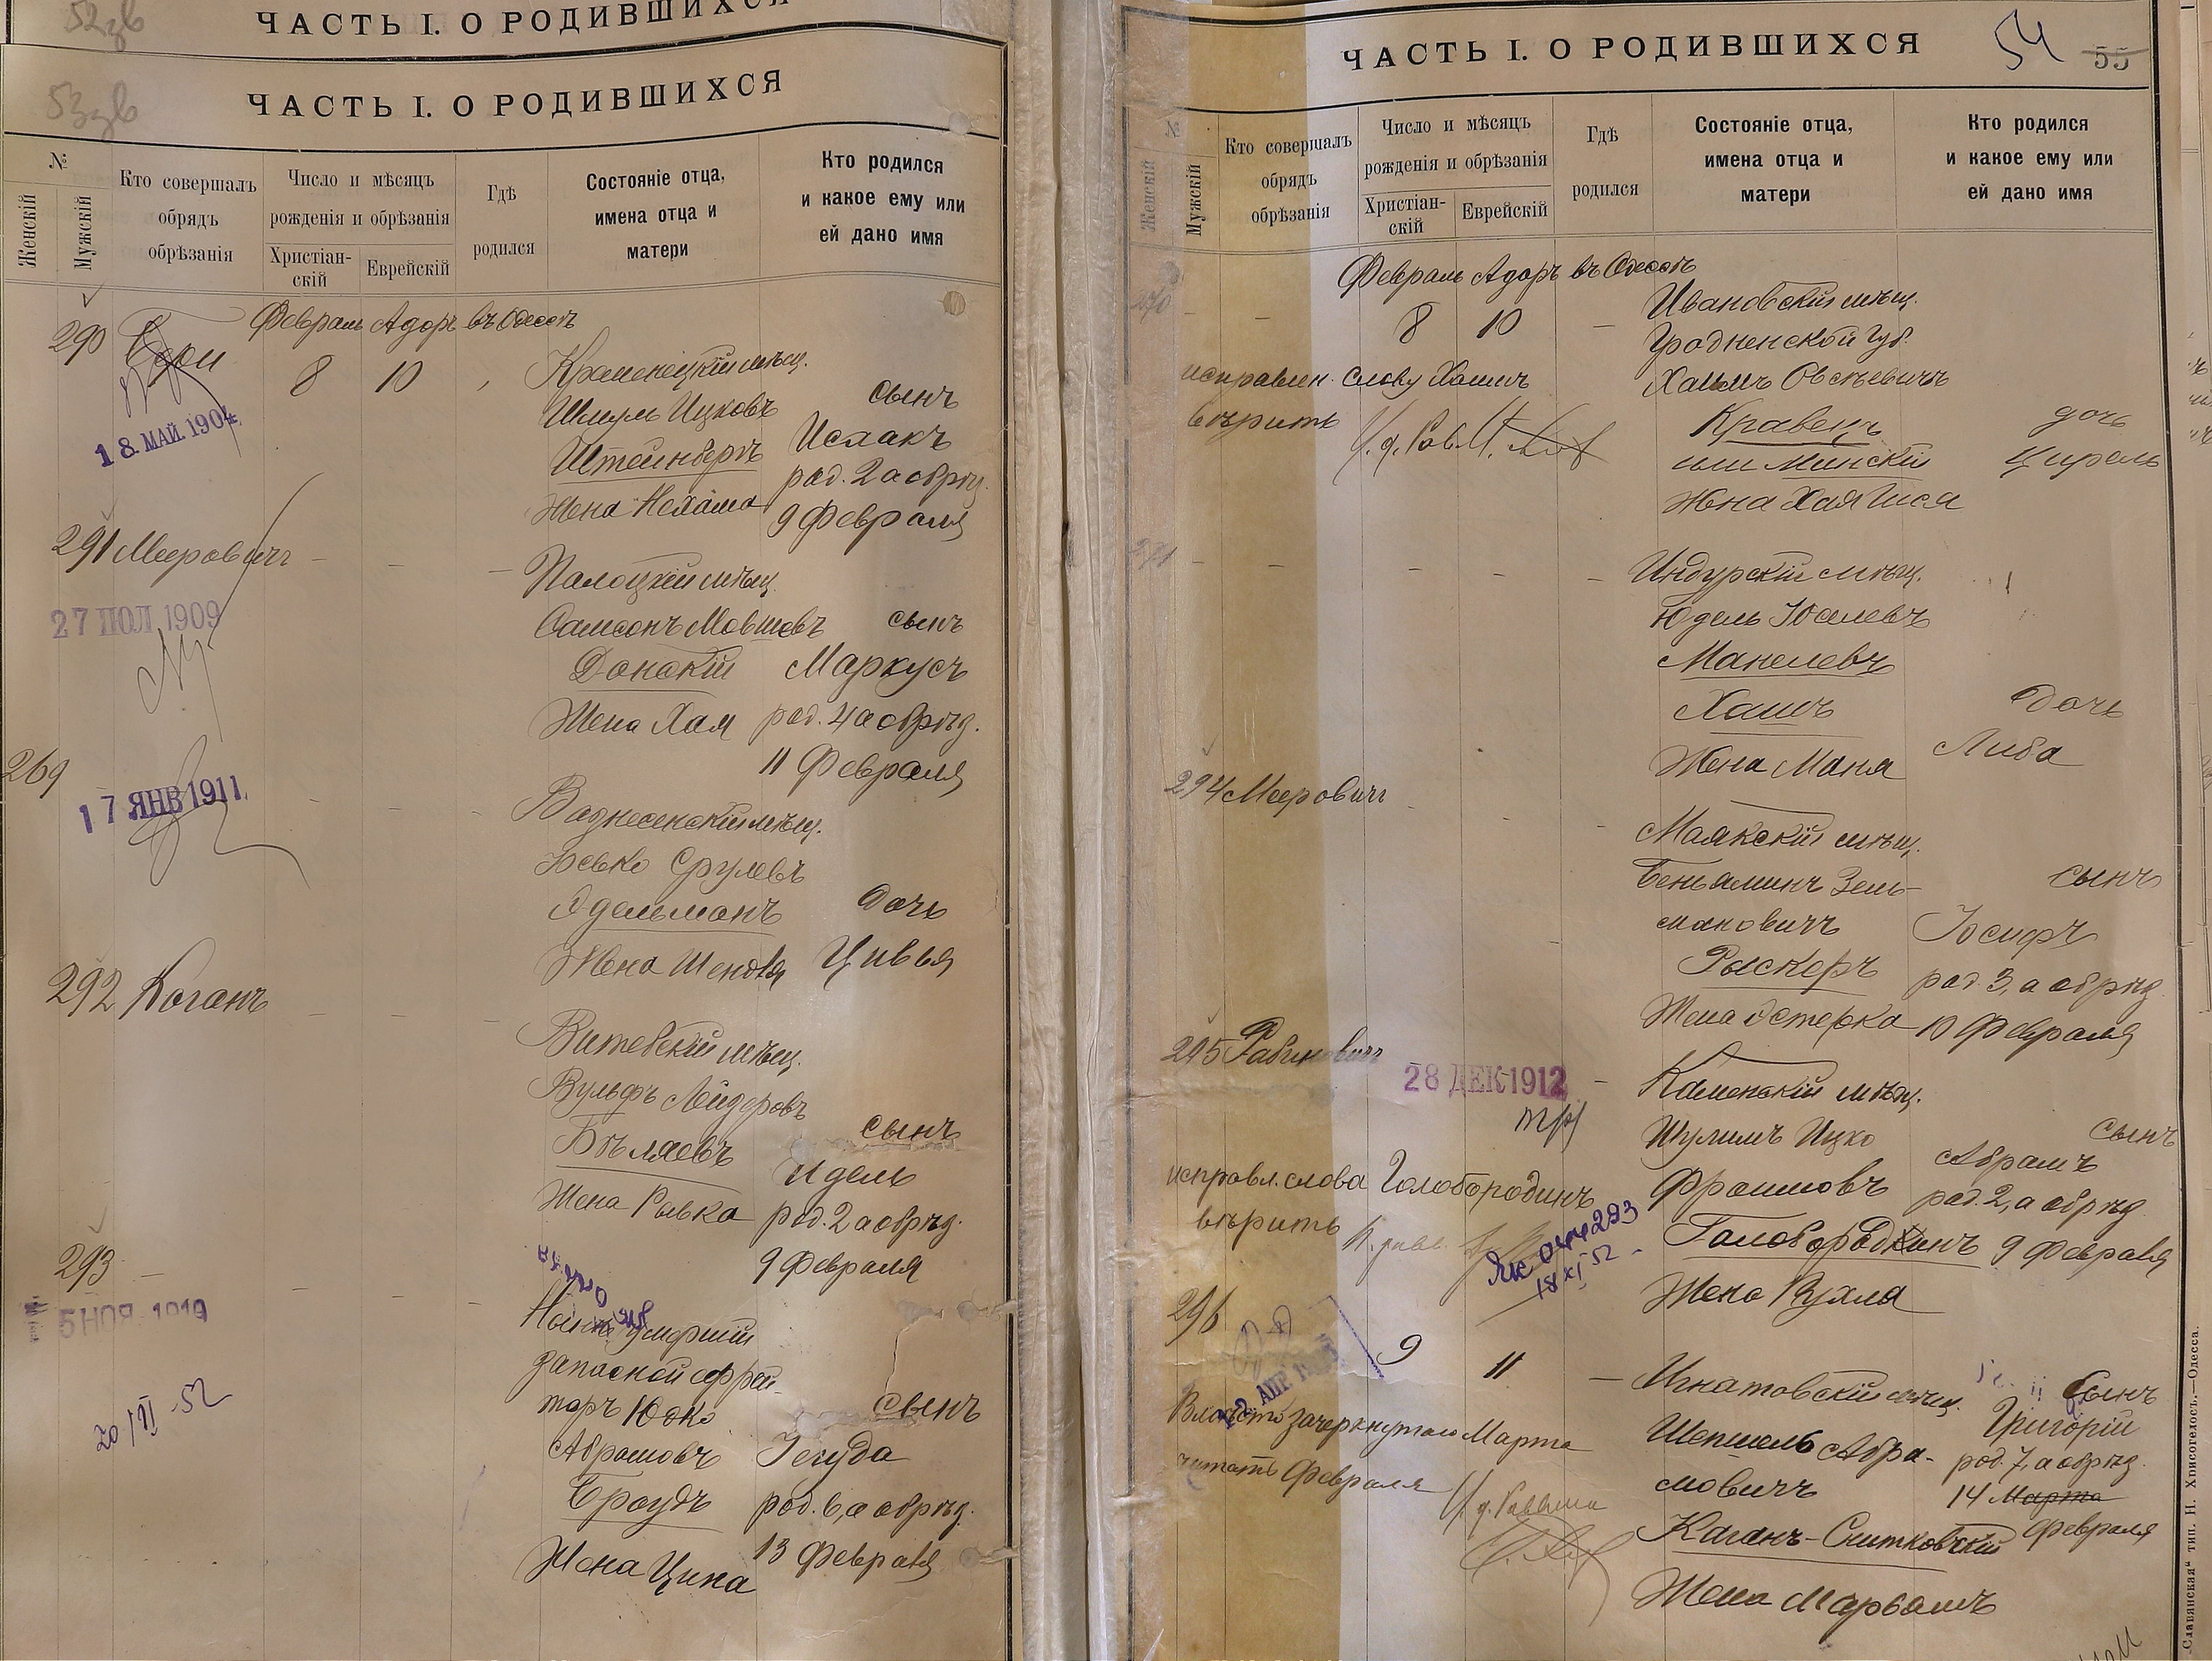 ЧАСТЬ I. О РОДИВШИХСЯ
53
ЧАСТЬ I. О РОДИВШИХСЯ
№
Женскій
Мужскій
Кто совершалъ
обрядъ
обрѣзанія
Число и мѣсяцъ
рожденія и обрѣзанія
Христіан-
скій
Еврейскій
Гдѣ
родился
Состояніе отца,
имена отца и
матери
Кто родился
и какое ему или
ей дано имя
Февраль Адоръ въ Одессѣ
290
8 10
18 МАЙ 1904
Кременецкій мѣщ.
Шмуль Ицковъ
Штейнбергъ
Жена Нехама
сынъ
Исаакъ
род. 2 а обрѣз.
9 Февраля
291 Мееровичъ
27 ІЮЛ 1909
Полоцкій мѣщ.
Самсонъ Мовшовъ
Донскій
Жена Хая
сынъ
Маркусъ
род. 4 а обрѣз.
11 Февраля
269
17 ЯНВ 1911
Вознесенскій мѣщ.
Берко Срулевъ
Эдельманъ
Жена Шендля
дочь
Цивья
292 Коганъ
Витебскій мѣщ.
Вульфъ Лейзеровъ
Бѣляевъ
Жена Рывка
сынъ
Идель
род. 2 а обрѣз.
9 Февраля
293
5 НОЯ 1919
20/VI-52
умершій
запасной ефрей-
торъ Юдко
Абрамовъ
Броудъ
Жена Цина
сынъ
Іегуда
род. 6, а обрѣз.
13 Февраля
ЧАСТЬ I. О РОДИВШИХСЯ
54
55
№
Женскій
Мужскій
Кто совершалъ
обрядъ
обрѣзанія
Число и мѣсяцъ
рожденія и обрѣзанія
Христіан-
скій
Еврейскій
Гдѣ
родился
Состояніе отца,
имена отца и
матери
Кто родился
и какое ему или
ей дано имя
Февраль Адоръ въ Одессѣ
270
8 10
Ивановскій мѣщ.
Гродненской Губ.
Хаимъ Овсѣевичъ
Кравецъ
или Минскій
Жена Хая Шися
дочь
Цирель
исправлен. слову Хаимъ
вѣрить
И. д. Рав.
271
Индурскій мѣщ.
Юдель Іоселевъ
Манелевъ
Хашъ
Жена Маня
дочь
Либа
294 Мееровичъ
Маякскій мѣщ.
Беньаминъ Зель-
мановичъ
Рыскеръ
Жена Эстерка
сынъ
Іосифъ
род. 3, а обрѣз.
10 Февраля
295 Рабиновичъ
28 ДЕК 1912
Каменскій мѣщ.
Шулимъ Ицко
Фроимовъ
Голобородкинъ
Жена Рухля
сынъ
Абрамъ
род. 2, а обрѣз.
9 Февраля
исправл. слова Голобородинъ
вѣрить
18 XI 52
296
9 11
Игнатовскій мѣщ.
Шепшель Абра-
мовичъ
Каганъ-Снитковскій
Жена Марьямъ
сынъ
Григорій
род. 7, а обрѣз.
14 Марта
Февраля
Вмѣсто зачеркнутаго Марта
читать Февраля
И. д. Раввина
„Славянская“ тип. Н. Хрисогелосъ.—Одесса.